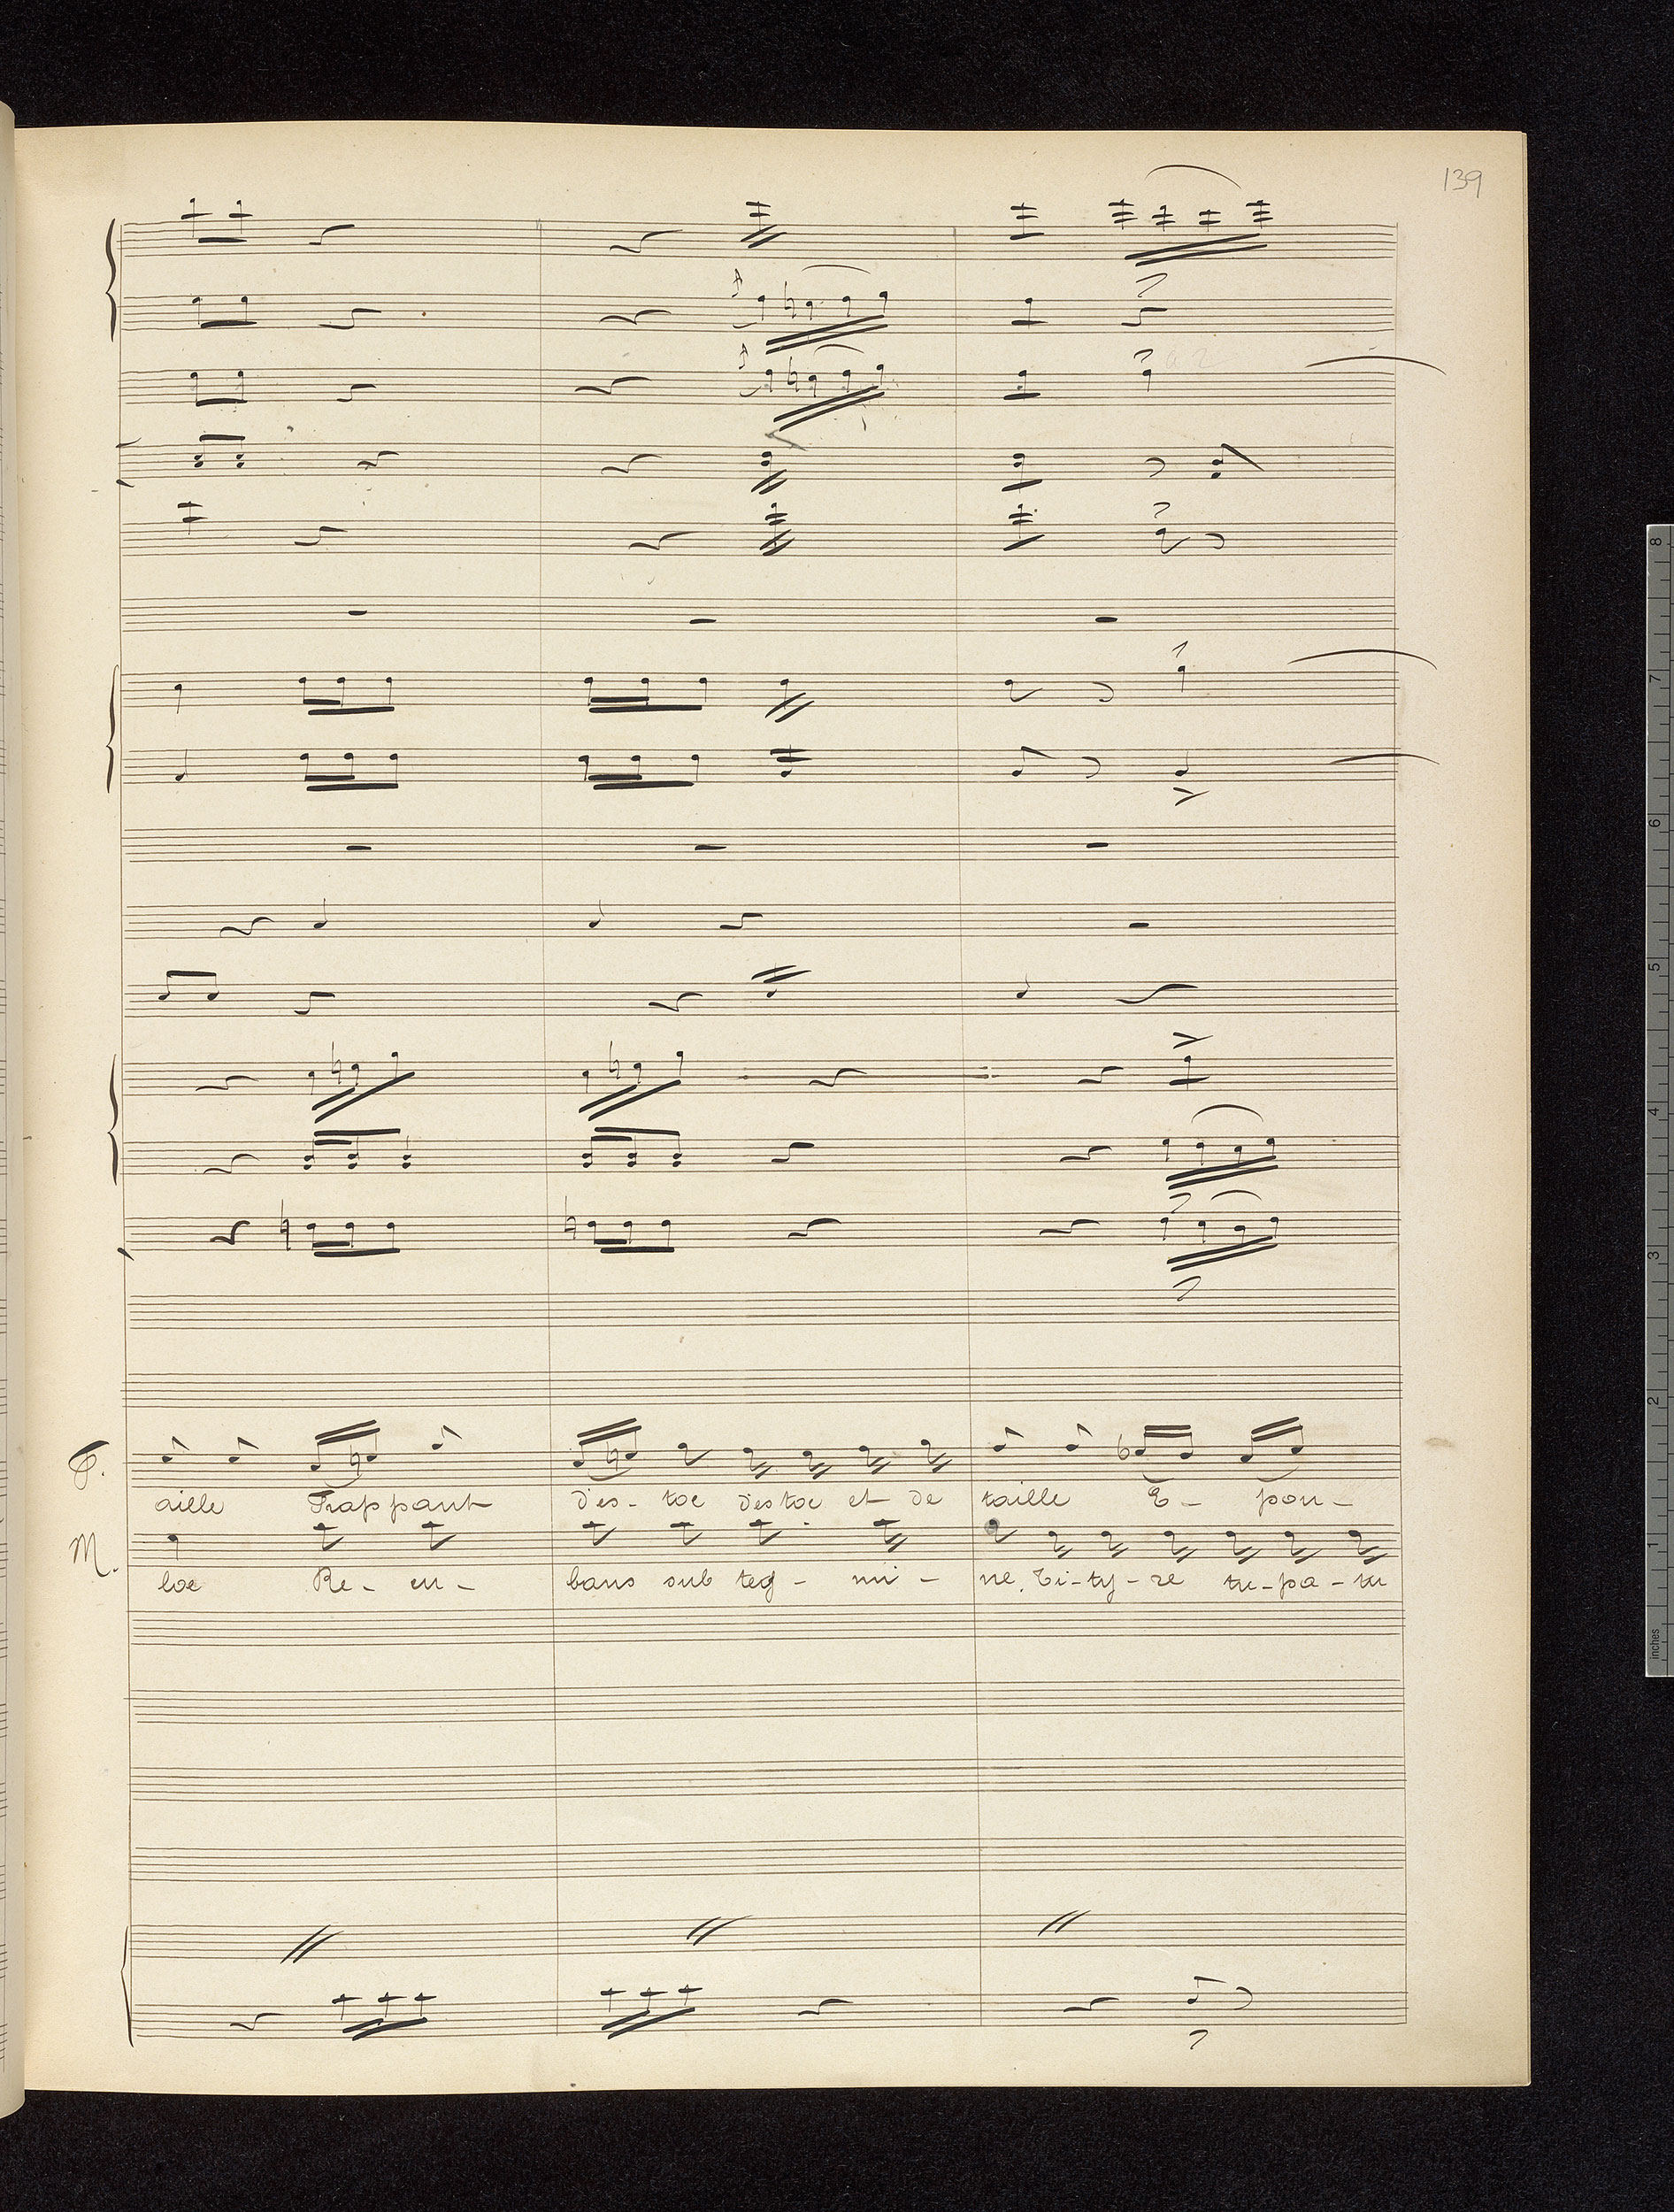 139
a 2
T.
aille Frappant d'es- toc d'estoc et de taille E- pou-
M.
loe Re- cu- bans sub teg- mi- ne. Ti-ty-re tu-pa-tu
inches 1 2 3 4 5 6 7 8